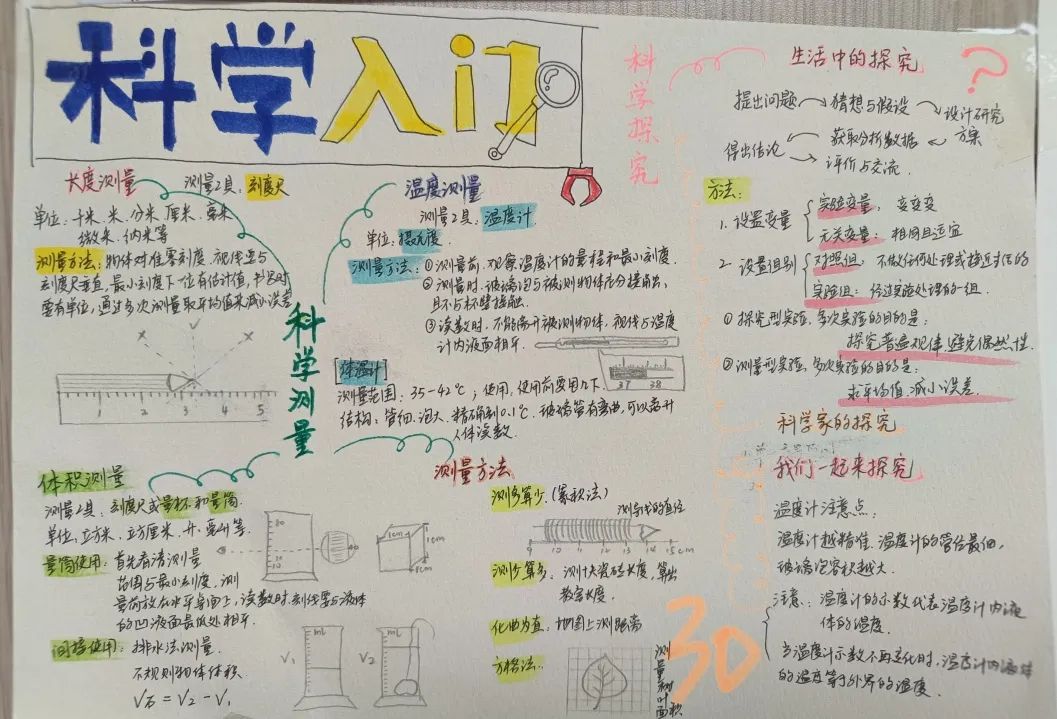 科学入门
长度测量
测量工具：刻度尺
单位：千米、米、分米、厘米、毫米
微米、纳米等
测量方法：物体对准零刻度，视线要与
刻度尺垂直，最小刻度下一位有估计值，书写时
要有单位，通过多次测量取平均值来减小误差
0 1 2 3 4 5
温度测量
测量工具：温度计
单位：摄氏度
测量方法：①测量前，观察温度计的量程和最小刻度.
②测量时，玻璃泡与被测物体充分接触，
且不与杯壁接触.
③读数时，不能离开被测物体，视线与温度
计内液面相平.
37 38
[体温计]
测量范围：35-42℃；使用，使用前要甩几下.
结构：管细、泡大、精确到0.1℃，玻璃管有弯曲，可以离开
人体读数.
科学测量
体积测量
测量工具：刻度尺或量杯和量筒.
单位，立方米、立方厘米、升、毫升等.
量筒使用：首先看清测量
范围与最小刻度，测
量前放在水平桌面上，读数时视线要与液体
的凹液面最低处相平.
间接使用：排水法测量.
不规则物体体积
V石=V2-V1
80
10
1cm
1cm
1cm
mL
V1
mL
V2
测量方法
测多算少.(累积法)
测导线的直径
9 10 11 12 13 14 15cm
测少算多：测1块瓷砖长度，算出
教室长度.
化曲为直：地图上测距离
方格法：
测量树叶面积
30
科学探究
生活中的探究
?
提出问题
猜想与假设
设计研究
方案
获取分析数据
得出结论
评价与交流.
方法：
1.设置变量
实验变量，变变变
无关变量：相同且适宜
2.设置组别
对照组：不做任何处理或接近过低的
实验组：经过实验处理的一组.
①探究型实验，多次实验的目的是：
探究普遍规律，避免偶然性.
②测量型实验，多次实验的目的是：
求平均值，减小误差.
科学家的探究
我们一起来探究
温度计注意点：
温度计越精准，温度计的管径最细，
玻璃泡容积越大.
注意：温度计的示数代表温度计内液
体的温度.
当温度计示数不再变化时，温度计内液体
的温度等于外界的温度.